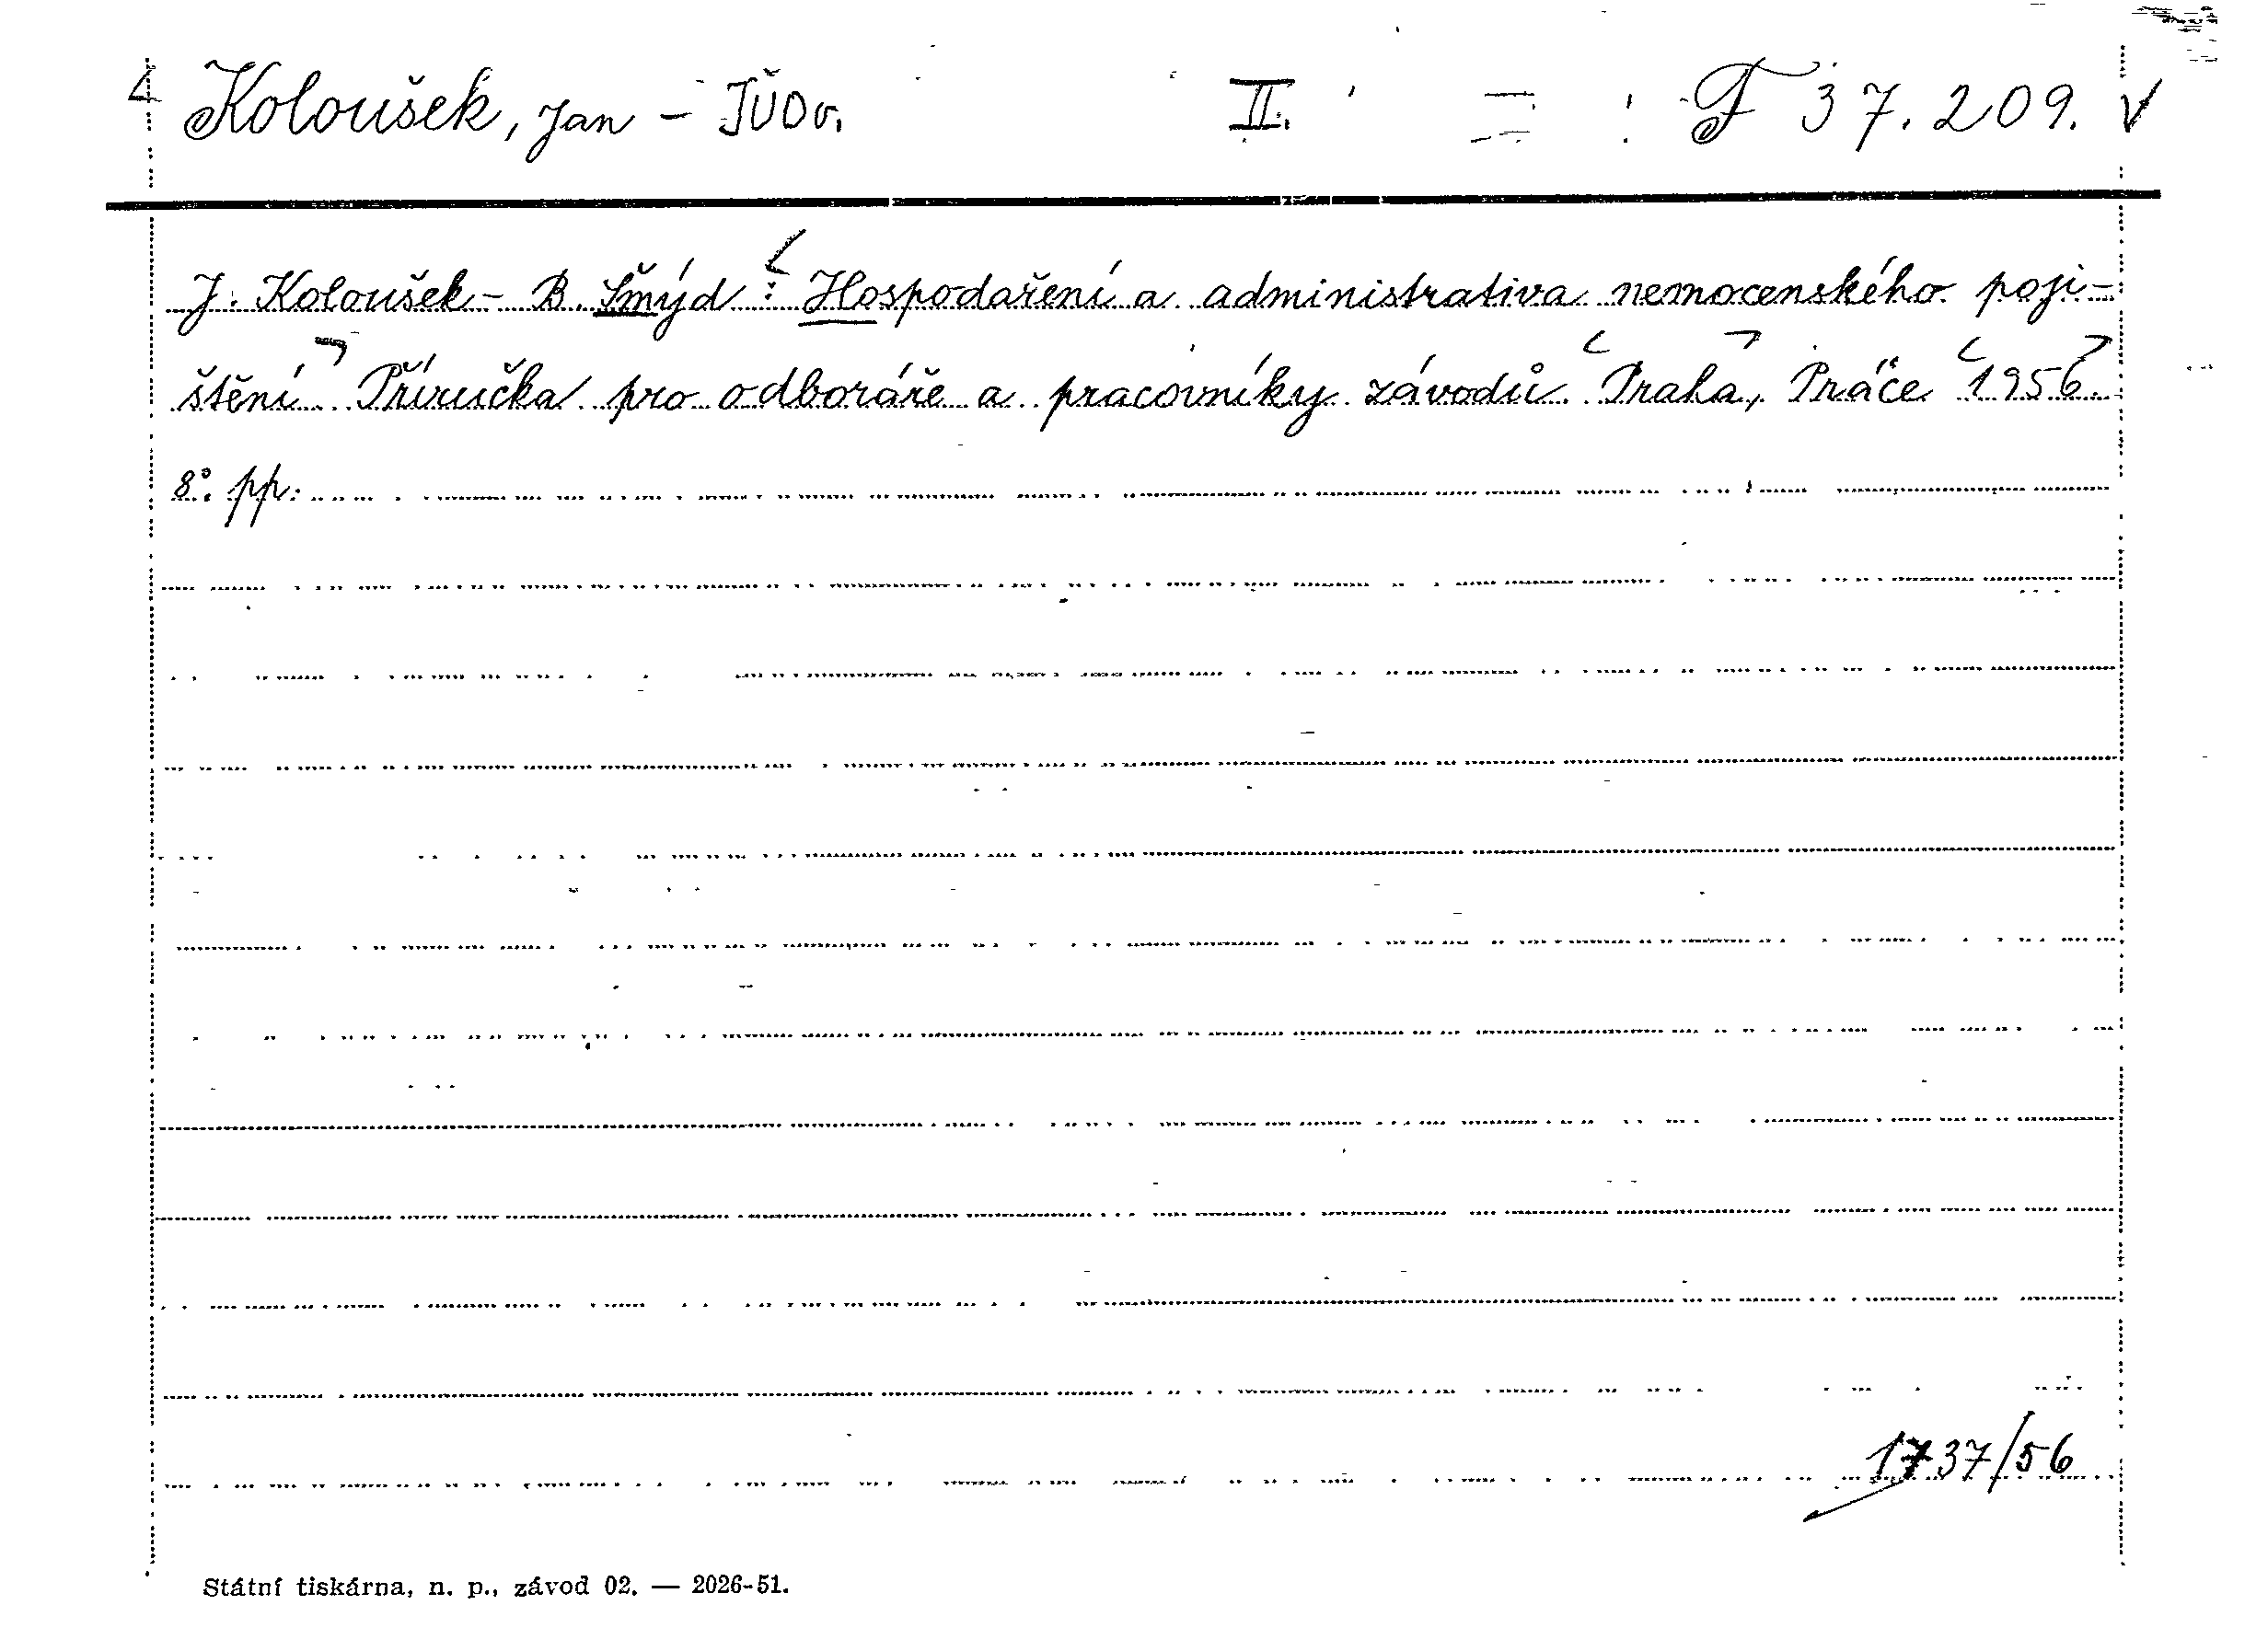 Koloušek, Jan - JUDr. II. F 37.209.
J. Koloušek - B. Šmýd : Hospodaření a administrativa nemocenského poji-
štění Příručka pro odboráře a pracovníky závodů Praha, Práce 1956.
8°. pp.
1737/56
Státní tiskárna, n. p., závod 02. — 2026-51.